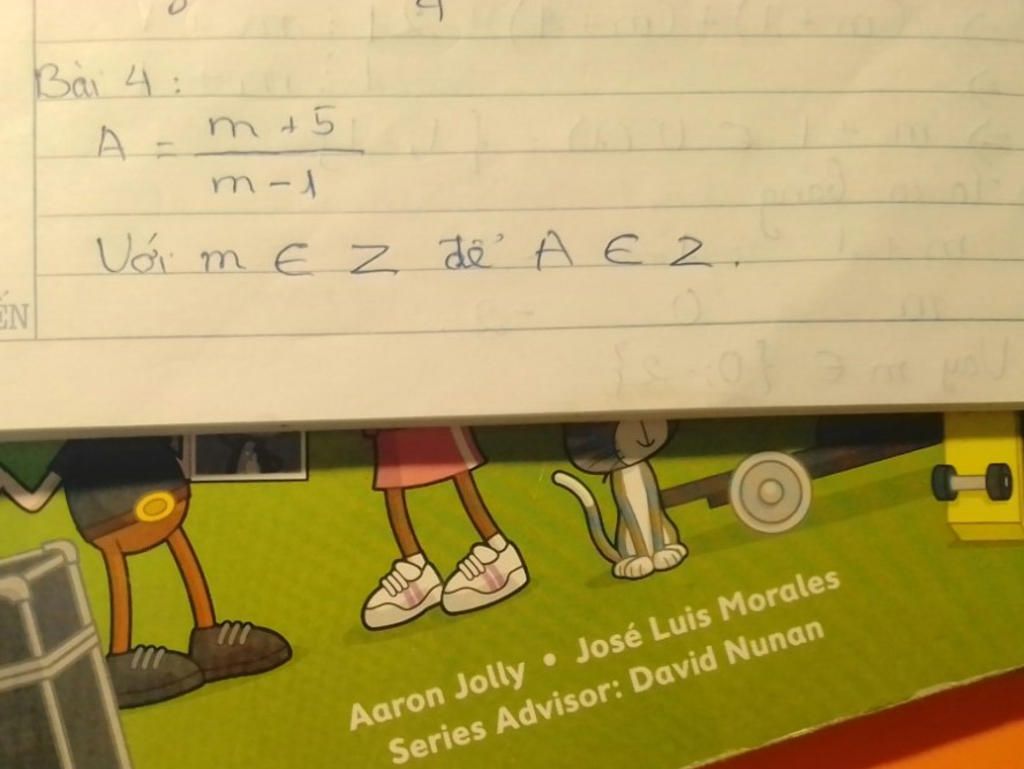 4
Bài 4 :
A = m + 5
m - 1
Với m ∈ Z để A ∈ Z.
ẾN
Aaron Jolly • José Luis Morales
Series Advisor: David Nunan